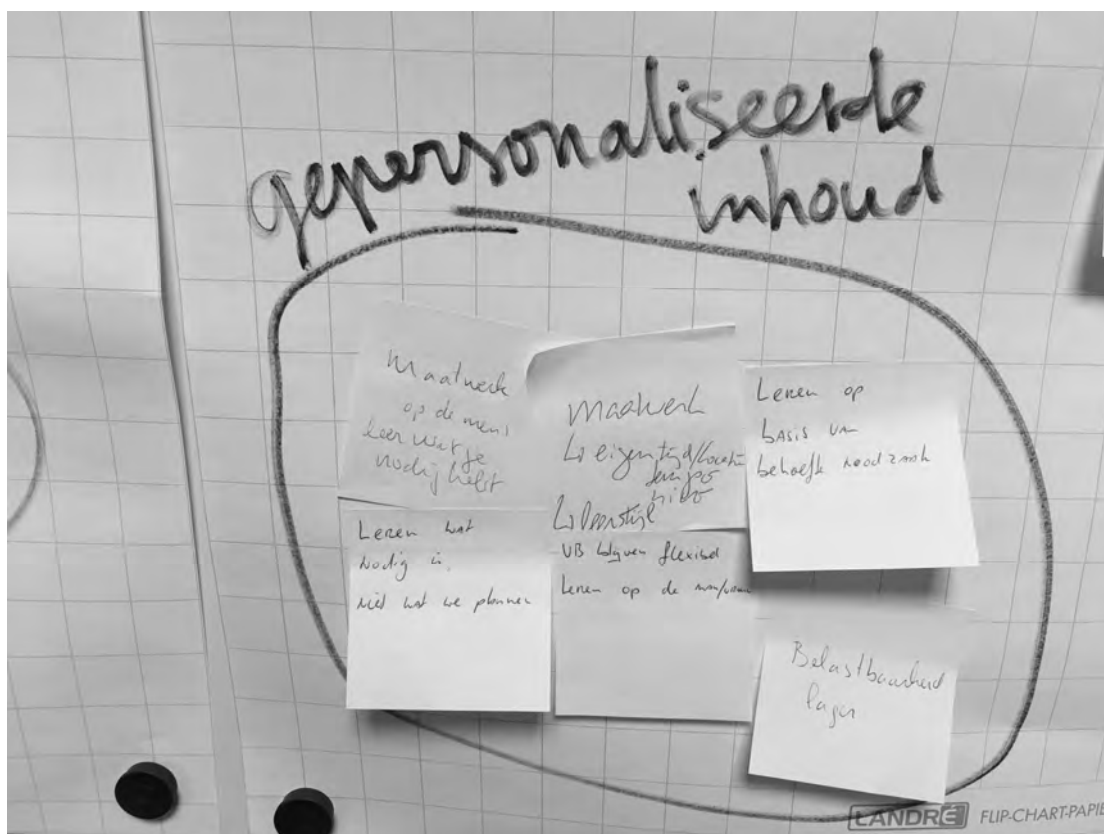 gepersonaliseerde
inhoud
Maatwerk
op de mens
leer wat je
nodig hebt
maatwerk
↳ eigen tijd/locatie
tempo
↳ leerstijl
Leren op
basis van
behoefte noodzaak
Leren wat
nodig is,
niet wat we plannen
VB blijven flexibel
Leren op de man/vrouw
Belastbaarheid
lager
LANDRÉ FLIP-CHART-PAPIE